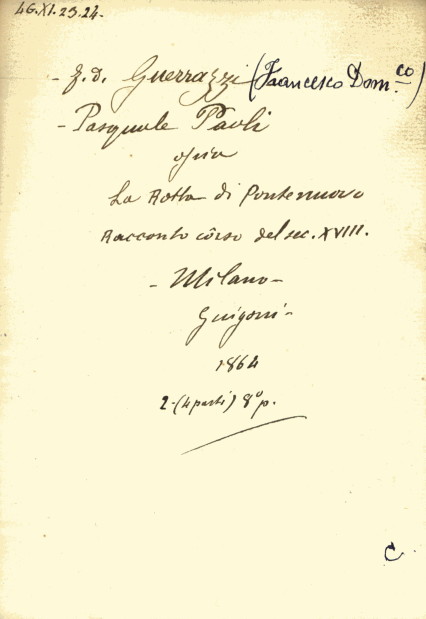 46.XI.23.24.
- F. D. Guerrazzi (Francesco Dom.co)
- Pasquale Paoli
ossia
La Rotta di Pontenuovo
Racconto côrso del sec. XVIII.
- Milano -
Guigoni -
1864
2 - (4 parti) 8° p.
C